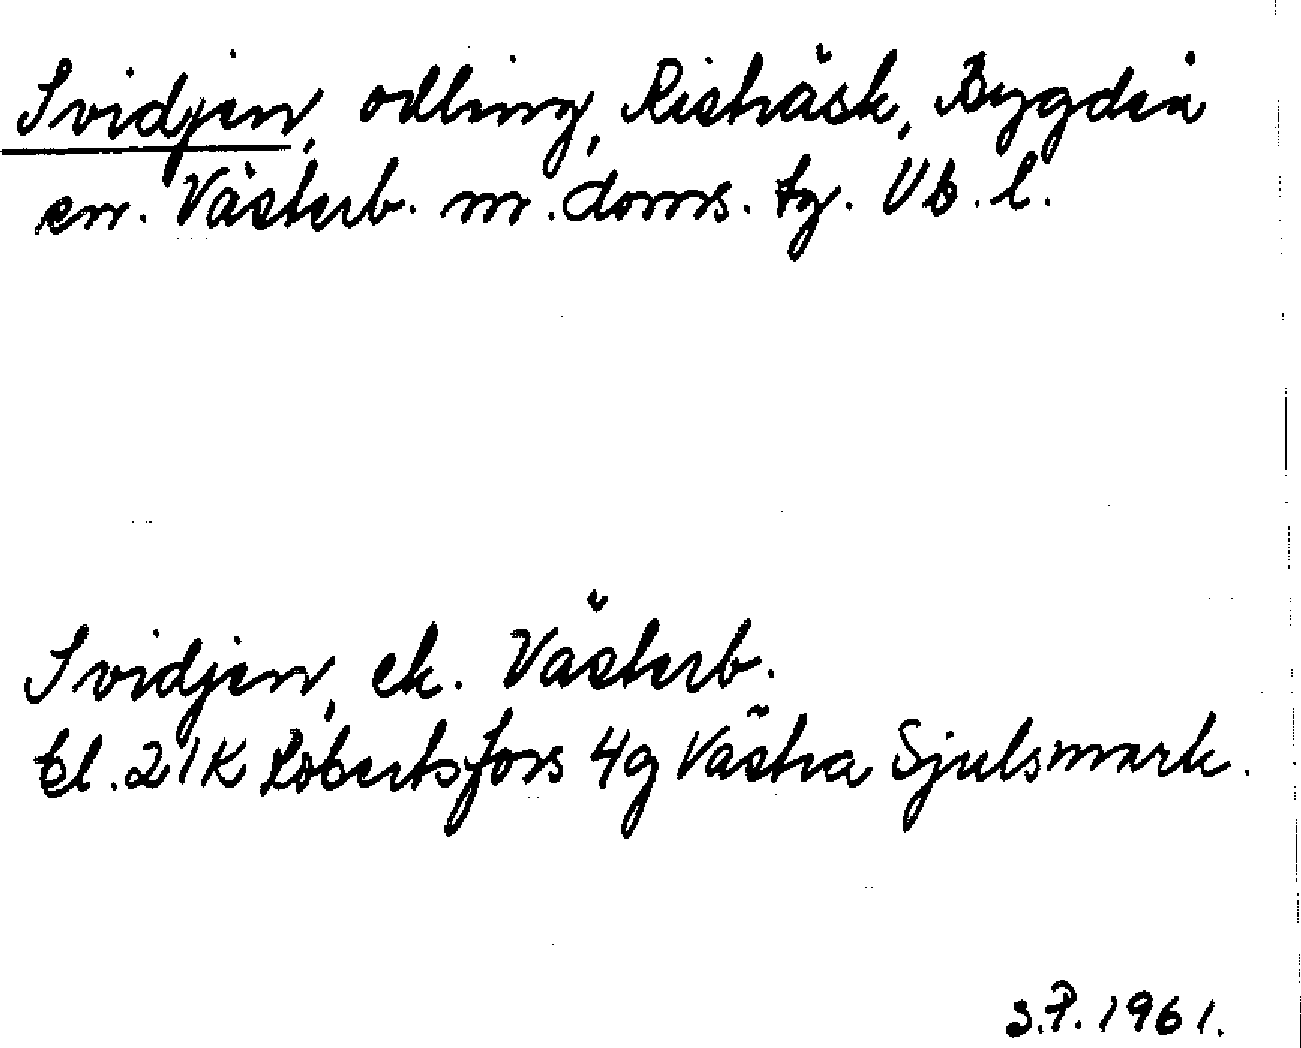 Svidjen, odling, Risträsk, Bygdeå
sn. Västerb. m. doms. tg. Vb. l.
Svidjen, ek. Västerb.
bl. 21K Robertsfors 4g Västra Sjulsmark.
S.P. 1961.